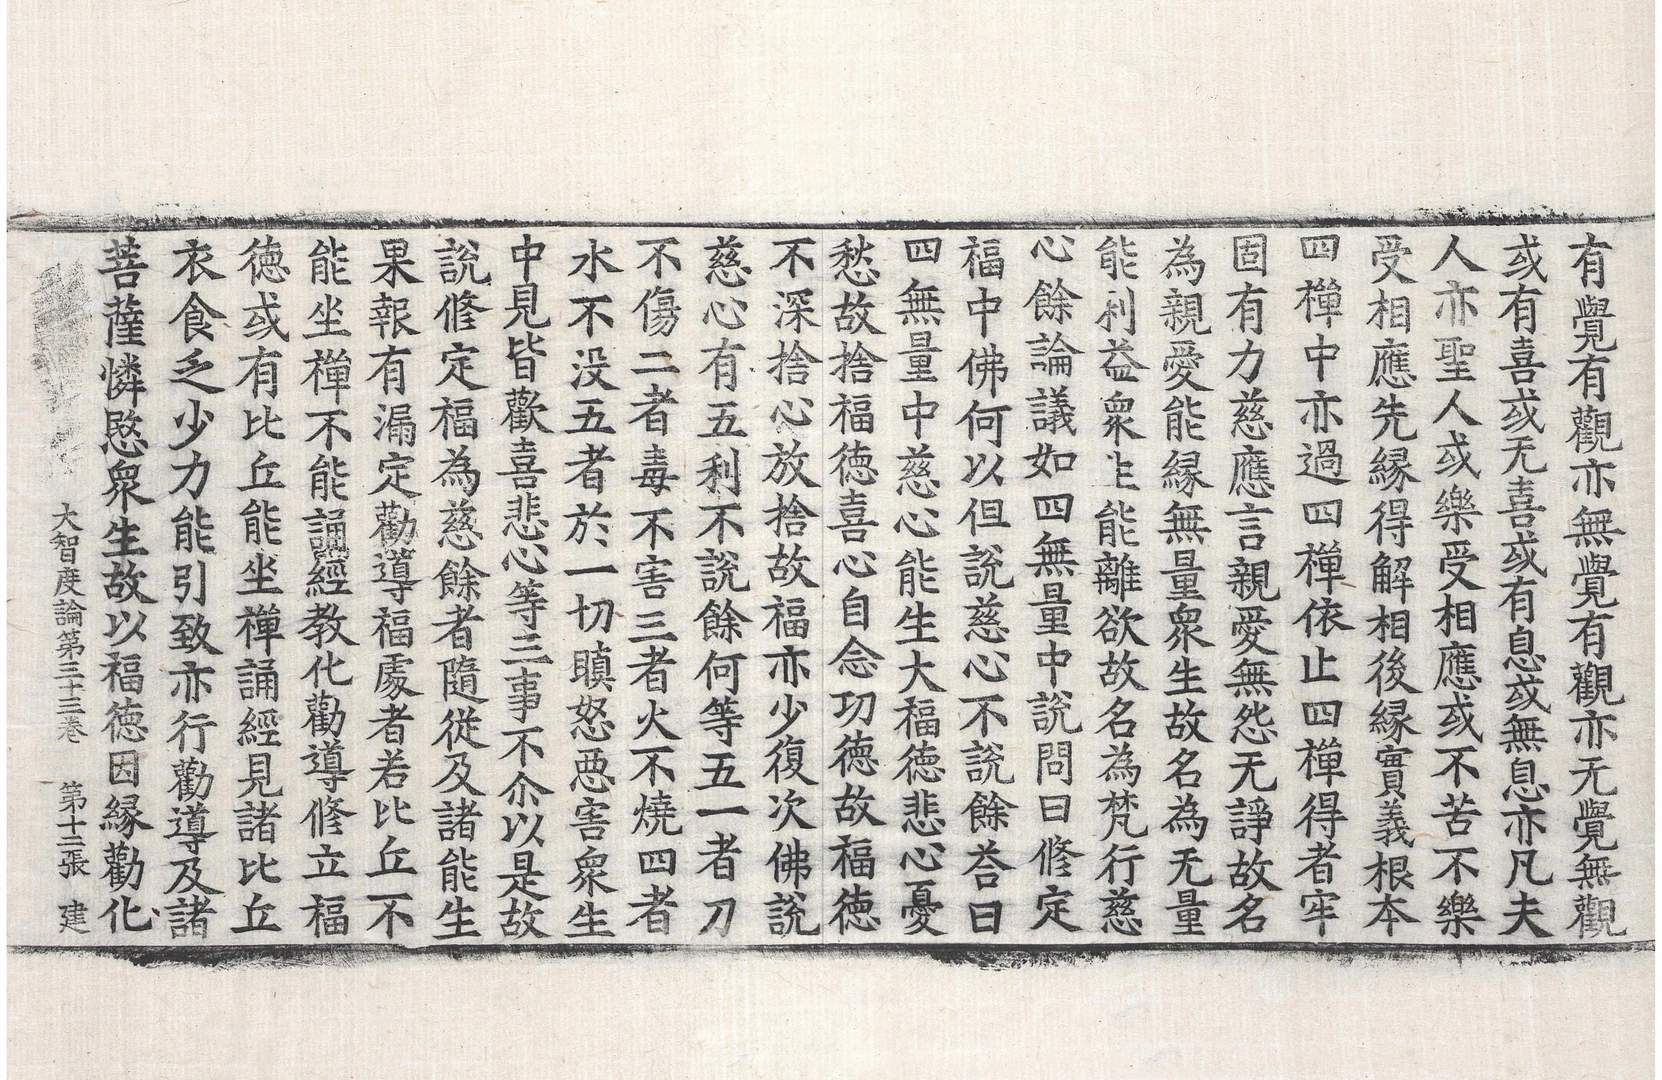 有覺有觀亦無覺有觀亦无覺無觀
或有喜或无喜或有息或無息亦凡夫
人亦聖人或樂受相應或不苦不樂
受相應先縁得解相後縁實義根本
四禪中亦過四禪依止四禪得者牢
固有力慈應言親愛無怨无諍故名
為親愛能縁無量衆生故名為无量
能利益衆生能離欲故名為梵行慈
心餘論議如四無量中說問曰修定
福中佛何以但說慈心不說餘荅曰
四無量中慈心能生大福徳悲心憂
愁故捨福徳喜心自念功徳故福徳
不深捨心放捨故福亦少復次佛說
慈心有五利不說餘何等五一者刀
不傷二者毒不害三者火不燒四者
水不没五者於一切瞋怒惡害衆生
中見皆歡喜悲心等三事不尒以是故
說修定福為慈餘者隨從及諸能生
果報有漏定勸導福處者若比丘不
能坐禪不能誦經教化勸導修立福
徳或有比丘能坐禪誦經見諸比丘
衣食乏少力能引致亦行勸導及諸
菩薩憐愍衆生故以福徳因縁勸化
大智度論第三十三卷 第十二張 建